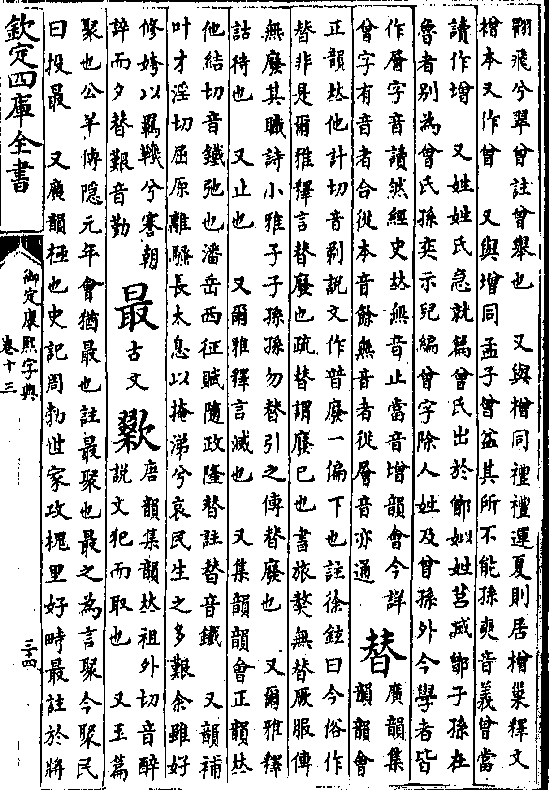 翾飛兮翠曾註曾舉也　又與橧同禮禮運夏則居橧巢釋文
橧本又作曾　又與增同孟子曾益其所不能孫奭音義曾當
讀作增　又姓姓氏急就篇曾氏出於鄫姒姓莒滅鄫子孫在
魯者别為曾氏孫奕示兒編曾字除人姓及曾孫外今學者皆
作層字音讀然經史𠀤無音止當音增韻會今詳
曾字有音者合從本音餘無音者從層音亦通
替
廣韻集
韻韻會
正韻𠀤他計切音剃說文作暜廢一偏下也註徐鉉曰今俗作
替非是爾雅釋言替廢也疏替謂廢已也書旅獒無替厥服傳
無廢其職詩小雅子子孫孫勿替引之傳替廢也　又爾雅釋
詁待也　又止也　又爾雅釋言滅也　又集韻韻會正韻𠀤
他結切音鐵弛也潘岳西征賦隨政隆替註替音鐵　又韻補
叶才淫切屈原離騷長太息以掩涕兮哀民生之多艱余雖好
修姱以羈鞿兮謇朝
誶而夕替艱音勤
最
古文
㝡
唐韻集韻𠀤祖外切音醉
說文犯而取也　又玉篇
聚也公羊傳隱元年會猶最也註最聚也最之為言聚今聚民
曰投最　又廣韻極也史記周勃世家攻槐里好畤最註於將
欽定四庫全書
御定康熙字典
卷十三
三十四